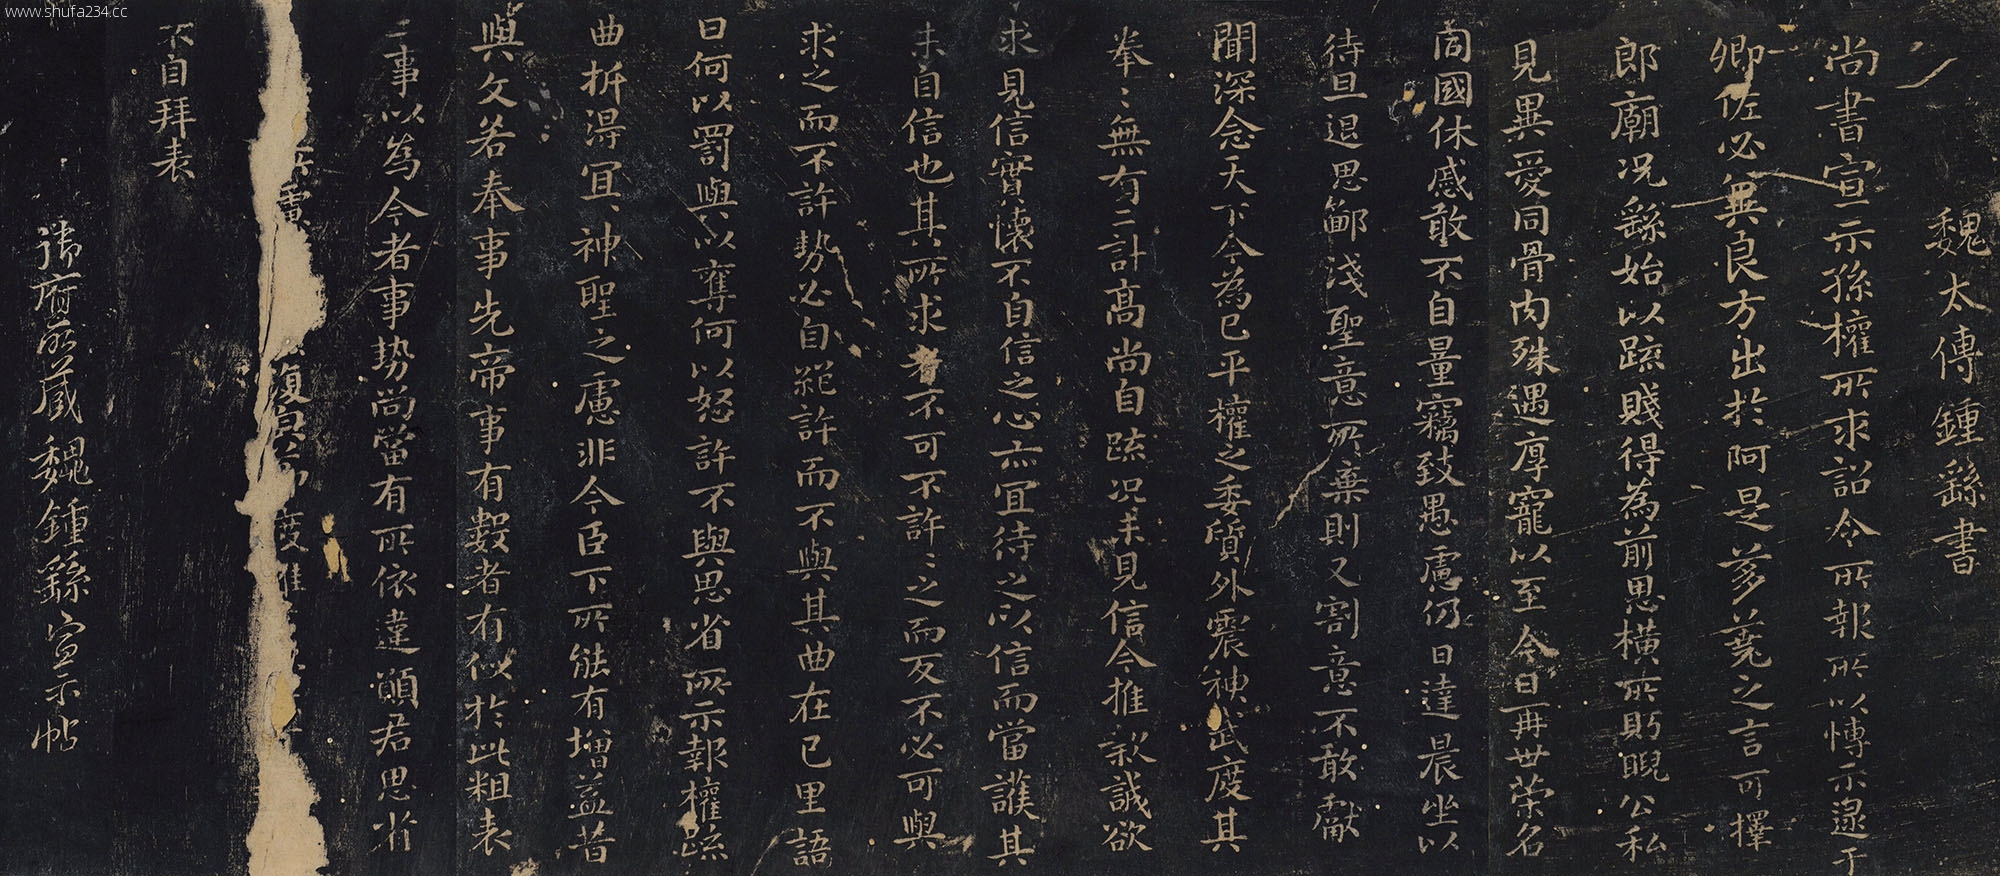 www.shufa234.cc
魏太傅鍾繇書
尚書宣示孫權所求詔令所報所以博示逮于
卿佐必冀良方出於阿是芻蕘之言可擇
郎廟況繇始以疏賤得為前思橫所眄睨公私
見異愛同骨肉殊遇厚寵以至今日再世榮名
同國休慼敢不自量竊致愚慮仍日達晨坐以
待旦退思鄙淺聖意所棄則又割意不敢獻
聞深念天下今為已平權之委質外震神武度其
拳〻無有二計高尚自疏況未見信今推款誠欲
求見信實懷不自信之心亦宜待之以信而當護其
未自信也其所求者不可不許〻之而反不必可與
求之而不許勢必自絕許而不與其曲在己里語
曰何以罰與以奪何以怒許不與思省所示報權疏
曲折得宜〻神聖之慮非今臣下所能有增益昔
與文若奉事先帝事有數者有似於此粗表
二事以為今者事勢尚當有所依違願君思省
復與節度唯
不自拜表
賜府所藏魏鍾繇宣示帖